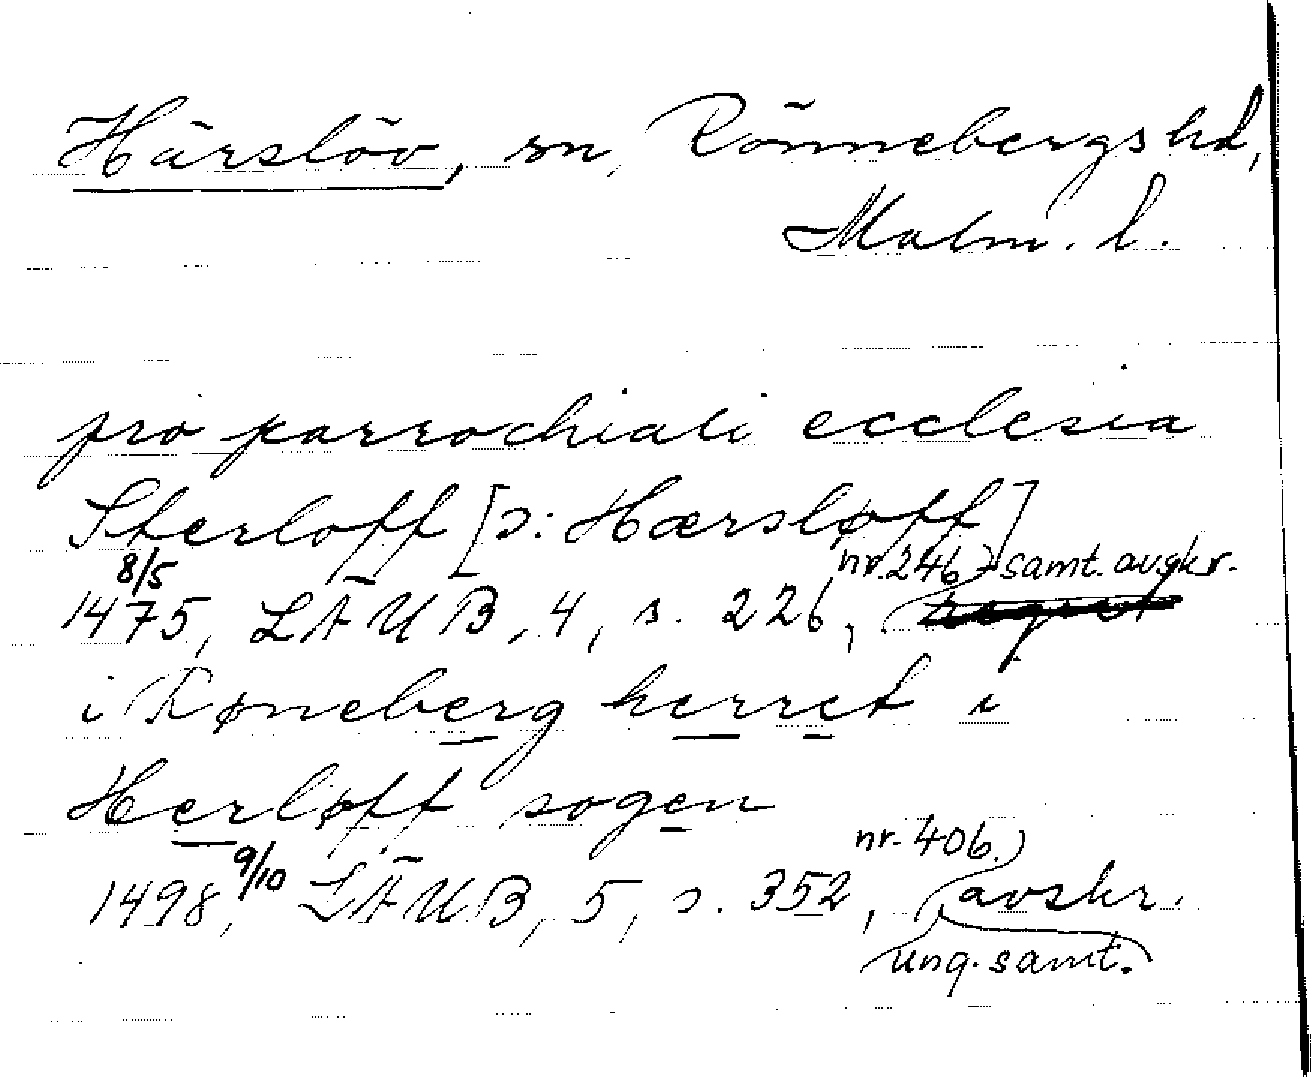 Härslöv, sn, Rönnebergs hd,
Malm. l.
pro parrochiali ecclesia
Sterloff [ɔ: Hærsløff]
8/5 nr. 246, samt. avskr.
1475, LÄUB, 4, s. 226,
i Røneberg herret i
Herløff sogen
9/10 nr. 406,
1498, LÄUB, 5, s. 352, avskr.
ung. samt.